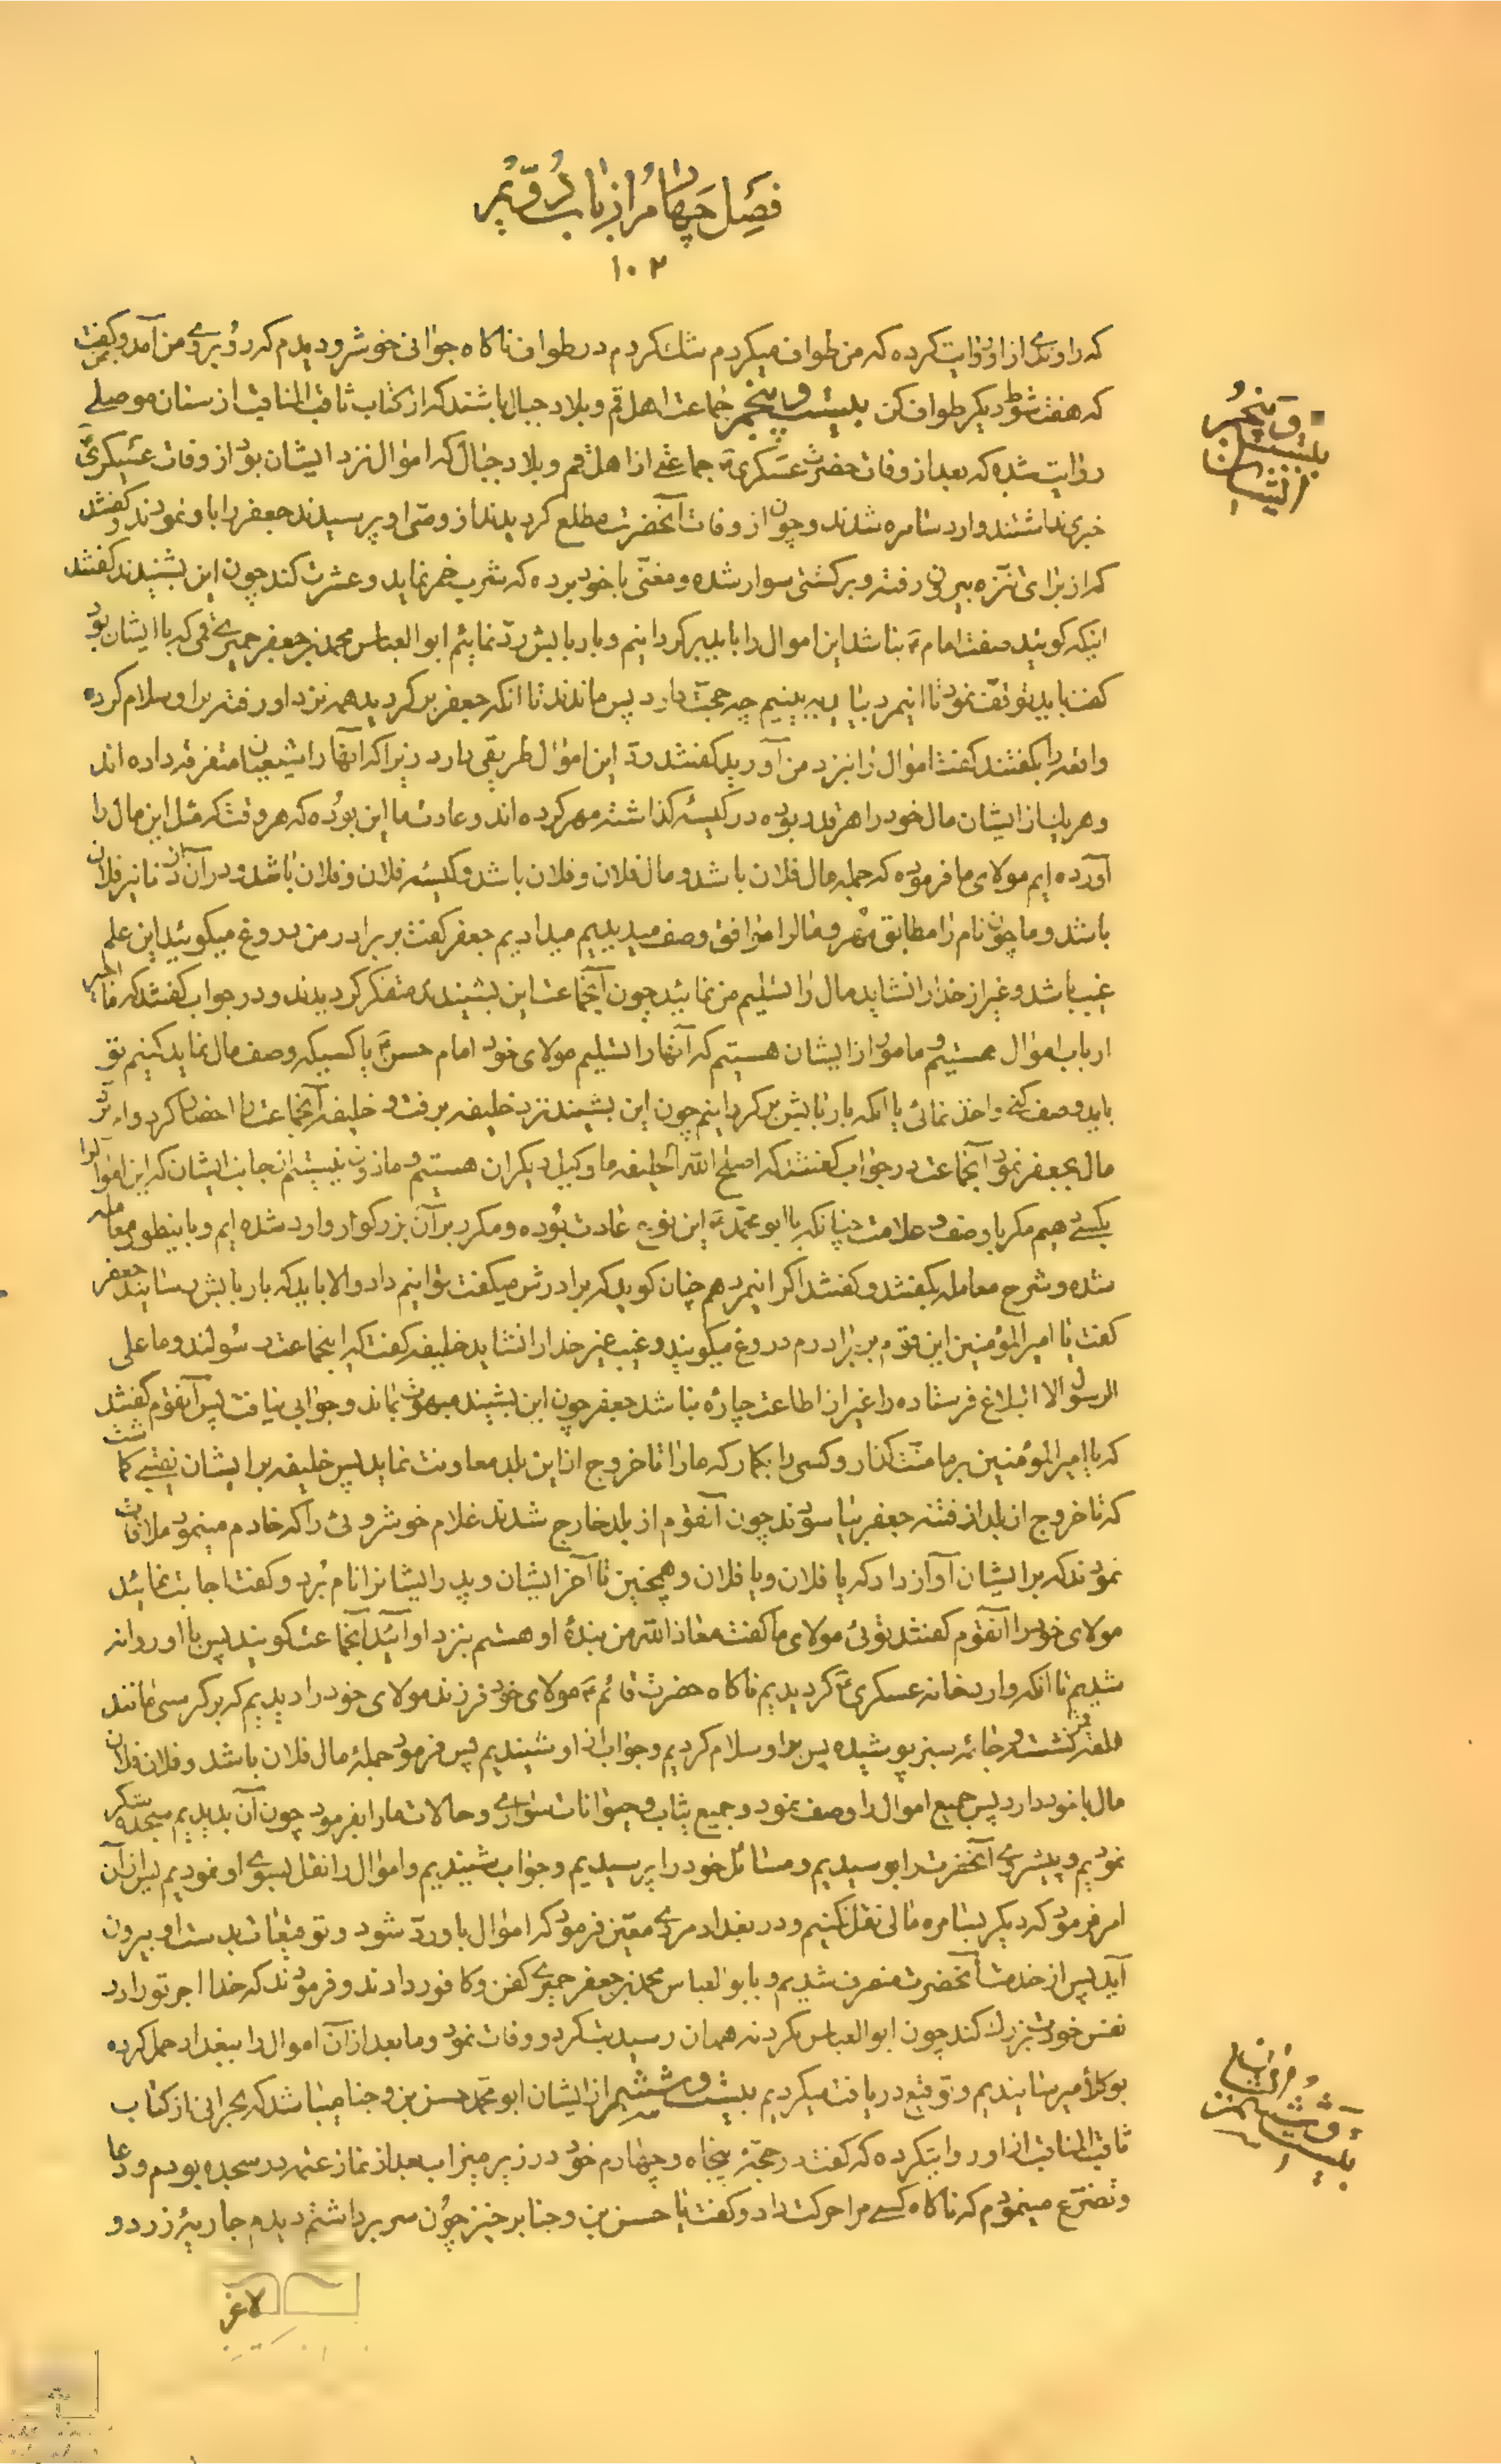 فصل چهارم از باب دویم
۱۰۲
که راوندی از او روایت کرده که من طواف میکردم شک کردم در طواف ناگاه جوانی خوشرو دیدم که رو بروی من آمد و گفت
که هفت شوط دیگر طواف کن بیست و پنجم جماعت اهل قم و بلاد جبال باشند که از کتاب ثاقب المناقب از سنان موصلی
روایت شده که بعد از وفات حضرت عسکری ع جماعتی از اهل قم و بلاد جبال که اموال نزد ایشان بود از وفات عسکری ع
خبری نداشتند وارد سامره شدند و چون از وفات آنحضرت مطلع گردیدند از وصی او پرسیدند جعفر را باو نمودند و گفتند
که از برای تنزه بیرون رفته و بر کشتی سوار شده و مغنی با خود برده که شرب خمر نماید و عشرت کند چون این بشنیدند گفتند
اینکه گویید صفت امام ع نباشد این اموال را باید برگردانیم و باربابش رد نمائیم ابو العباس محمد بن جعفر حمیری قمی که با ایشان بود
گفت باید توقف نمود تا اینمرد بیاید ببینیم چه حجت دارد پس ماندند تا آنکه جعفر برگردید همه نزد او رفته بر او سلام کرده
واقعه را بگفتند گفت اموال را نزد من آورید گفتند رد این اموال طریقی دارد زیرا که آنها را شیعیان متفرقه داده اند
و هر یک از ایشان مال خود را هر قدر بوده در کیسه گذاشته مهر کرده اند و عادت ما این بوده که هر وقت که مثل این مال را
آورده ایم مولای ما فرموده که جمله مال فلان باشد و مال فلان و فلان باشد و کیسه فلان و فلان باشد و در آن از دنانیر فلان
باشد و ما چون نام را مطابق مهر و مال را موافق وصف میدیدیم میدادیم جعفر گفت بر برادر من دروغ میگوئید این علم
غیب باشد و غیر از خدا را نشاید مال را تسلیم من نمائید چون آنجماعت این بشنیدند متفکر گردیدند و در جواب گفتند که ما اجیر
ارباب اموال هستیم و مامور از ایشان هستیم که آنها را تسلیم مولای خود امام حسن ع یا کسیکه وصف مال نماید کنیم تو
باید وصف کنی و اخذ نمائی یا آنکه باربابش برگردانیم چون این بشنید نزد خلیفه برفت و خلیفه آنجماعت را احضار کرد و امر برد
مال بجعفر نمود آنجماعت در جواب گفتند که اصلح الله الخلیفه ما وکیل دیگران هستیم و ماذون نیستیم از جانب ایشان که این اموال را
بکسی دهیم مگر با وصف و علامت چنانکه با ابو محمد ع این نوع عادت بوده و مکرر بر آن بزرگوار وارد شده ایم و باینطور معامله
شده و شرح معامله بگفتند و گفتند اگر اینمرد هم چنان گوید که برادرش میگفت توانیم داد والا باید که باربابش رسانید جعفر
گفت یا امیر المؤمنین این قوم بر برادرم دروغ میگویند و غیب غیر خدا را نشاید خلیفه گفت که اینجماعت رسولند و ما علی
الرسول الا البلاغ فرستاده را غیر از اطاعت چاره نباشد جعفر چون این بشنید مبهوت بماند و جوابی نیافت پس آنقوم گفتند
که یا امیر المؤمنین بر ما منت گذار و کسی را بگمار که ما را تا خروج از این بلد معاونت نماید پس خلیفه بر ایشان نقیبی گماشت
که تا خروج از بلد از فتنه جعفر بیاسودند چون آنقوم از بلد خارج شدند غلام خوشروئی را که خادم مینمود ملاقات
نمودند که بر ایشان آواز داد که یا فلان و یا فلان و همچنین تا آخر ایشان و پدر ایشانرا نام برد و گفت اجابت نمائید
مولای خود را آنقوم گفتند توئی مولای ما گفت معاذ الله من بنده او هستم بنزد او آئید آنجماعت گویند پس با او روانه
شدیم تا آنکه وارد خانه عسکری ع گردیدیم ناگاه حضرت قائم ع مولای خود فرزند مولای خود را دیدیم که بر کرسی مانند
فلقه قمر نشسته و جامه سبز پوشیده پس بر او سلام کردیم و جواب از او شنیدیم پس فرمود جمله مال فلان باشد و فلان فلان
مال با خود دارد پس جمیع اموال را وصف نمود و جمیع ثیاب و حیوانات سواری و حالات ما را بفرمود چون آن بدیدیم سجده شکر
نمودیم و پیشروی آنحضرت را بوسیدیم و مسائل خود را پرسیدیم و جواب شنیدیم و اموال را نقل بسوی او نمودیم پس از آن
امر فرمود که دیگر بسامره مالی نقل نکنیم و در بغداد مردی معین فرمود که اموال باو رد شود و توقیعات بدست او بیرون
آید پس از خدمت آنحضرت منصرف شدیم و بابو العباس محمد بن جعفر حمیری کفن و کافور دادند و فرمودند که خدا اجر تو را در
نفس خودت بزرک کند چون ابو العباس بگردنه همدان رسید تب کرد و وفات نمود و ما بعد از آن اموال را ببغداد حمل کرده
بوکلا میرسانیدیم و توقیع دریافت میکردیم بیست و ششم از ایشان ابو محمد حسن بن وجنا میباشد که بحرانی از کتاب
ثاقب المناقب از او روایت کرده که گفت در حجه پنجاه و چهارم خود در زیر میزاب بعد از نماز عتمه در سجده بودم و دعا
و تضرع مینمودم که ناگاه کسی مرا حرکت داد و گفت یا حسن بن وجنا برخیز چون سر برداشتم دیدم جاریهٔ زرد رو
لاغر
بیست و پنجم
از ایشان
بیست و ششم
از ایشان